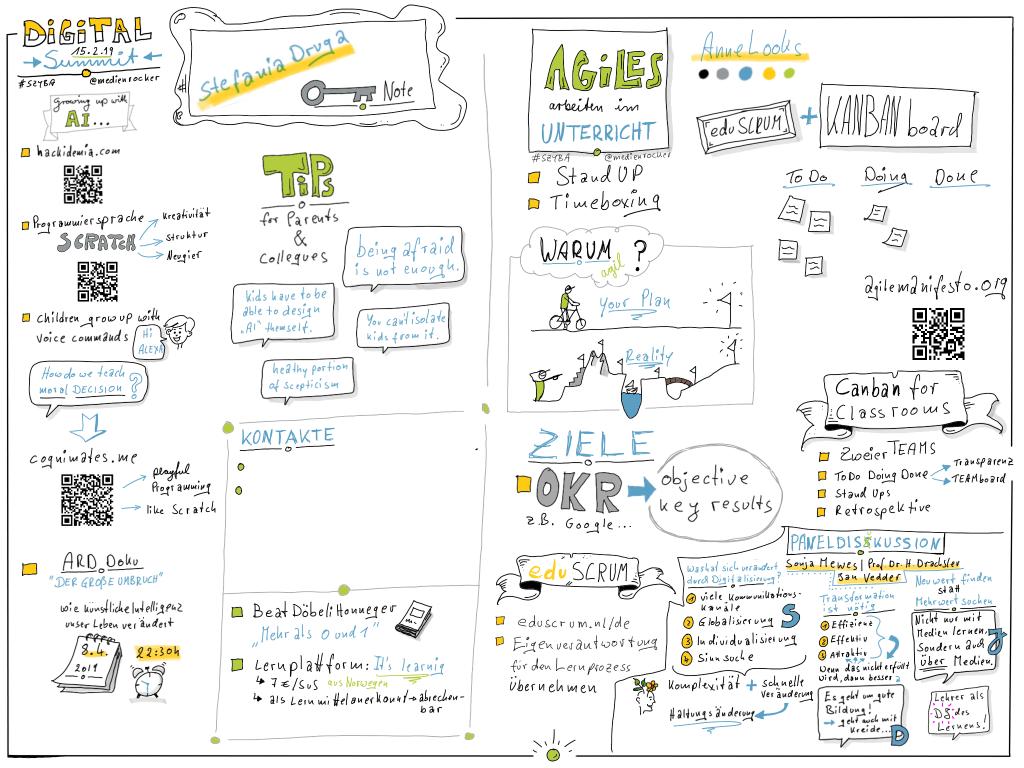 DiGiTAL
15.2.19
Summit
#SZYBA @medienrocker
Stefania Druga
Note
growing up with
AI...
hackidemia.com
Programmiersprache
SCRATCH
Kreativität
Struktur
Neugier
Children grow up with
voice commands
Hi
ALEXA
How do we teach
moral DECISION ?
cognimates.me
playful
Programming
like Scratch
ARD Doku
"DER GROßE UMBRUCH"
wie künstliche Intelligenz
unser Leben verändert
8.4.
2019
22:30h
TiPs
for Parents
&
Collegues
being afraid
is not enough.
Kids have to be
able to design
"AI" themself.
You can't isolate
kids from it.
healthy portion
of scepticism
KONTAKTE
Beat Döbeli Honneger
"Mehr als 0 und 1"
Lernplattform: It's learnig
7€/SuS aus Norwegen
als Lernmittel anerkannt → abrechen-
bar
AGiLES
arbeiten im
UNTERRICHT
#SZYBA @medienrocker
StandUP
Timeboxing
Anne Looks
edu SCRUM
+
KANBAN board
To Do Doing Done
WARUM ?
agil
Your Plan
Reality
agilemanifesto.org
ZIELE
OKR
z.B. Google...
objective
key results
Canban for
Classrooms
Zweier TEAMS
ToDo Doing Done
Transparenz
TEAMboard
Stand Ups
Retrospektive
edu SCRUM
eduscrum.nl/de
Eigenverantwortung
für den Lernprozess
übernehmen
PANELDISKUSSION
Sonja Mewes | Prof Dr. H. Drachsler
Jan Vedder
Was hat sich verändert
durch Digitalisierung?
1 viele Kommunikations-
kanäle
2 Globalisierung
3 Individualisierung
4 Sinnsuche
S
Transformation
ist nötig
1 Effizienz
2 Effektiv
3 Attraktiv
Wenn das nicht erfüllt
wird, dann besser
Neuwert finden
statt
Mehrwert suchen
Nicht nur mit
Medien lernen,
Sondern auch
Über Medien.
J
Komplexität + schnelle
Veränderung
Haltungsänderung
Es geht um gute
Bildung!
→ geht auch mit
Kreide...
D
Lehrer als
DJ des
Lernens!